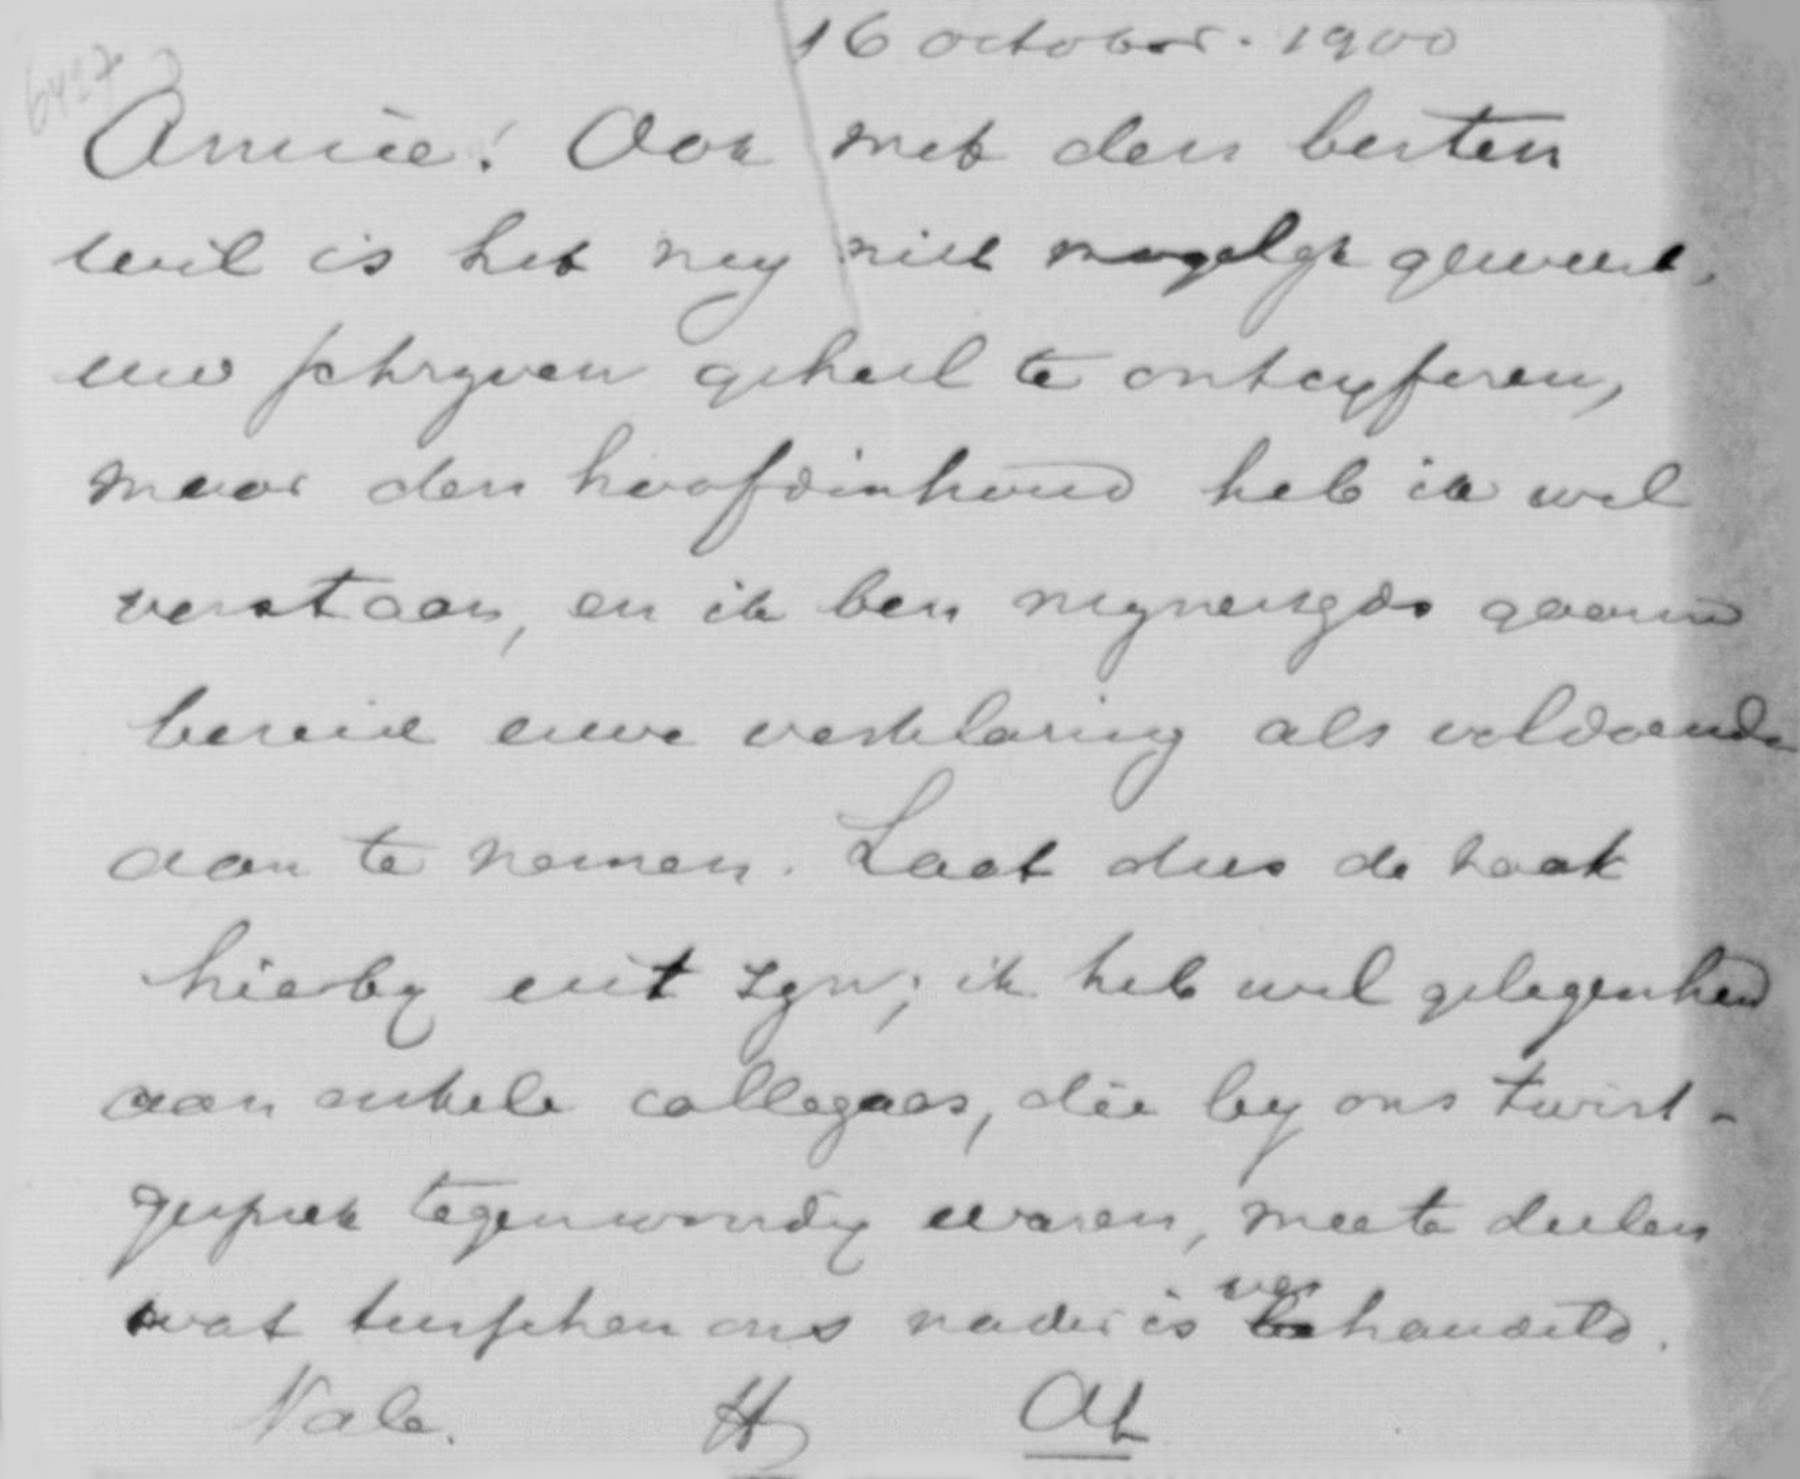 16 october. 1900
6427
Amice! Ook met den besten
wil is het my niet mogelyk geweest,
uw schryven geheel te ontcyferen,
maar den hoofdinhoud heb ik wel
verstaan, en ik ben mynerzyds gaarne
bereid uwe verklaring als voldoende
aan te nemen. Laat dus de zaak
hierby uit zyn; ik heb wel gelegenheid
aan enkele collegaas, die by ons twist-
gesprek tegenwoordig waren, mee te deelen
wat tusschen ons nader is verhandeld.
Vale.